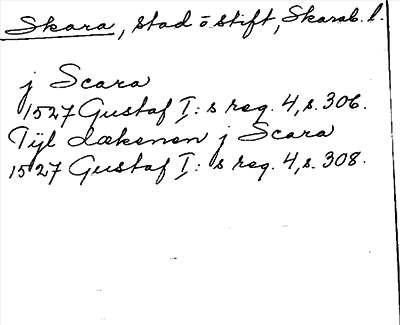 Skara, stad o stift, Skarab. l.
j Scara
1527 Gustaf I:s reg. 4, s. 306.
Tijl dækenen j Scara
1527 Gustaf I:s reg. 4, s. 308.